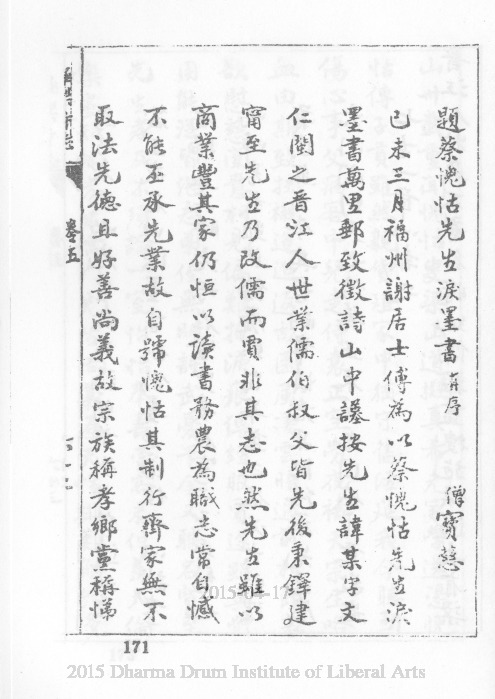 題蔡愧怙先生淚墨書有序 僧寶慧
己未三月福州謝居士傅為以蔡愧怙先生淚
墨書萬里郵致徵詩山中謹按先生諱某字文
仁閩之晉江人世業儒伯叔父皆先後秉鐸建
甯至先生乃改儒而賈非其志也然先生雖以
商業豐其家仍恒以讀書務農為職志常自憾
不能丕承先業故自號愧怙其制行齊家無不
取法先德且好善尚義故宗族稱孝鄉黨稱悌
卷五
171
2015 Dharma Drum Institute of Liberal Arts